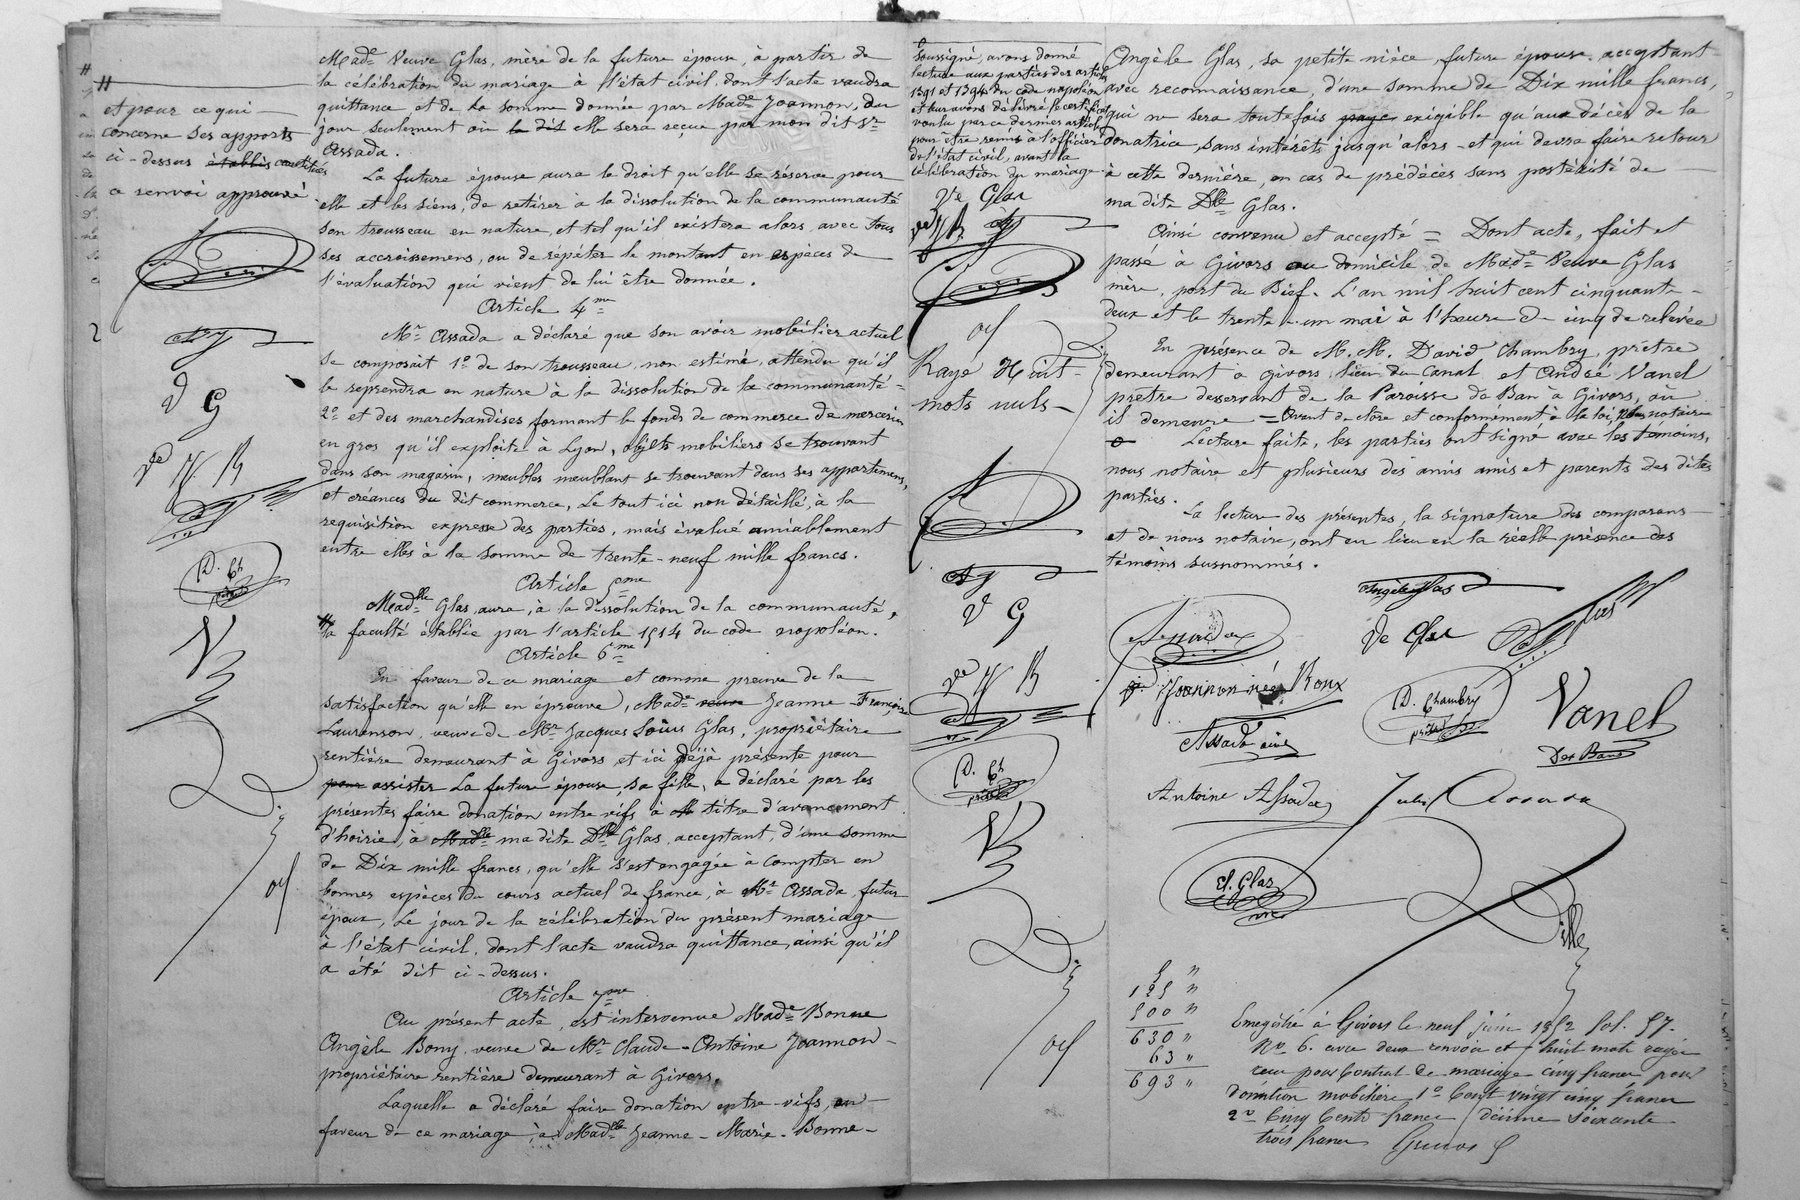 Made Veuve Glas, mère de la future épouse, à partir de
la célébration du mariage à l'état civil, dont l'acte vaudra
quittance et de la somme donnée par Made Joannon, du
jour seulement où la dit elle sera reçue par mon dit Sr
Assada.
La future épouse aura le droit qu'elle se réserve pour
elle et les siens, de retirer à la dissolution de la communauté
son trousseau en nature, et tel qu'il existera alors, avec tous
ses accroissemens, ou de répéter le montant en espèces de
l'évaluation qui vient de lui être donnée.
Article 4me
Mr Assada a déclaré que son avoir mobilier actuel
se composait 1o de son trousseau, non estimé, attendu qu'il
le reprendra en nature à la dissolution de la communauté =
2o et des marchandises formant le fonds de commerce de mercerie
en gros qu'il exploite à Lyon, objets mobiliers se trouvant
dans son magasin, meubles meublant se trouvant dans ses appartemens,
et créances du dit commerce, Le tout ici non détaillé, à la
requisition expresse des parties, mais évalué amiablement
entre elles à la somme de trente-neuf mille francs.
Article 5me
Madlle Glas, aura, à la dissolution de la communauté,
la faculté établie par l'article 1514 du code napoléon.
Article 6me
En faveur de ce mariage et comme preuve de la
satisfaction qu'elle en éprouve, Made veuve Jeanne-Françoise
Laurenson, veuve de Mr Jacques Louis Glas, propriétaire
rentière demeurant à Givors et ici déjà présente pour
pour assister la future épouse, sa fille, a déclaré par les
présentes faire donation entre vifs à titre d'avancement
d'hoirie, à Madlle ma dite Dlle Glas, acceptant d'une somme
de Dix mille francs, qu'elle s'est engagée à compter en
bonnes espèces du cours actuel de france, à Mr Assada, futur
époux, Le jour de la célébration du présent mariage
à l'état civil, dont l'acte vaudra quittance, ainsi qu'il
a été dit ci-dessus.
Article 7me
Au présent acte, est intervenue Made Bonne
Angèle Bony, veuve de Mr Claude-Antoine Joannon-
propriétaire rentière demeurant à Givors.
Laquelle a déclaré faire donation entre-vifs, en
faveur de ce mariage, à Madlle Jeanne-Marie-Bonne-
et pour ce qui
concerne ses apports
ci-dessus établis constitués
ce renvoi approuvé.
V G
Ve J R
D. Ch
prêtre
V
soussigné, avons donné
lecture aux parties des articles
1391 et 1394 du code napoléon
et leur avons délivré le certificat
voulu par ce dernier article
pour être remis à l'officier
de l'état civil, avant la
célébration du mariage.
Ve Glas
Rayé Huit
mots nuls
V G
Ve J R
D. Ch
prêtre
V
Angèle Glas, sa petite nièce, future épouse, acceptant
avec reconnaissance, d'une somme de Dix mille francs,
qui ne sera toutefois paye exigible qu'au décès de la
donatrice, sans intérêts jusqu'alors - et qui devra faire retour
à cette dernière, en cas de prédécès sans postérité de
ma dite Dlle Glas.
Ainsi convenu et accepté = Dont acte, fait et
passé à Givors au domicile de Made Veuve Glas
mère, port du Bief. L'an mil huit cent cinquante-
deux et le trente-un mai à l'heure de cinq de relevée
En présence de M.M. David Chambry, prêtre
demeurant à Givors lieu du Canal et André Vanel
prêtre desservant de la Paroisse de Ban à Givors, où
il demeure = Avant de clore et conformément à la loi, Nous notaire
Lecture faite, les parties ont signé avec les témoins,
nous notaire et plusieurs des amis amis et parents des dites
parties.
La lecture des présentes, la signature des comparans
et de nous notaire, ont eu lieu en la réelle présence des
témoins susnommés.
Angèle Glas
Ve Glas
Ve Joannon née Roux
D. Chambry
prêtre
Vanel
Des. Ban
Assada aîné
Antoine Assada
Jules Assada
El. Glas
5 "
125 "
500 "
630 "
63 "
693 "
Enregistré à Givors le neuf juin 1852 fol. 57.
No. 6. avec deux renvois et huit mots rayés
reçu pour Contrat de mariage cinq francs pour
donation mobilière 1o Cent vingt cinq francs
2o Cinq Cents francs / décime Soixante
trois francs